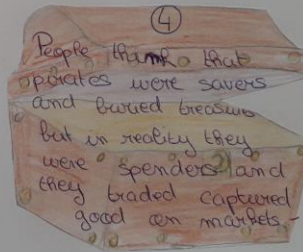 4
People think that
pirates were savers
and buried treasure
but in reality they
were spenders and
they traded captured
good on markets -